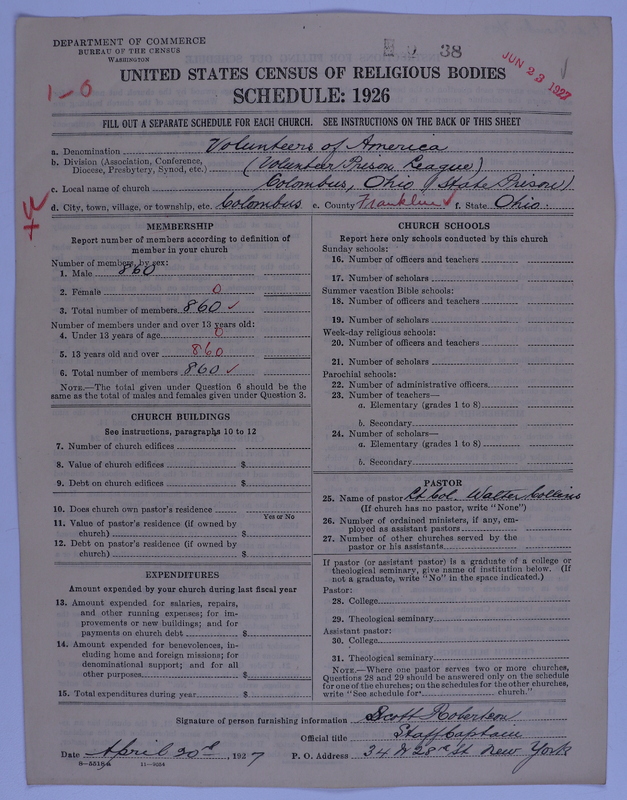 DEPARTMENT OF COMMERCE
BUREAU OF THE CENSUS
WASHINGTON
38
JUN 23 1927
1-0
UNITED STATES CENSUS OF RELIGIOUS BODIES
SCHEDULE: 1926
FILL OUT A SEPARATE SCHEDULE FOR EACH CHURCH. SEE INSTRUCTIONS ON THE BACK OF THIS SHEET
a. Denomination Volunteers of America
b. Division (Association, Conference, Diocese, Presbytery, Synod, etc.) (Volunteer Prison League)
c. Local name of church Colombus, Ohio (State Prison)
d. City, town, village, or township, etc. Colombus e. County Franklin f. State Ohio.
MEMBERSHIP
Report number of members according to definition of
member in your church
Number of members, by sex:
1. Male 860
2. Female 0
3. Total number of members 860 ✓
Number of members under and over 13 years old:
4. Under 13 years of age 0
5. 13 years old and over 860
6. Total number of members 860 ✓
NOTE.—The total given under Question 6 should be the
same as the total of males and females given under Question 3.
CHURCH BUILDINGS
See instructions, paragraphs 10 to 12
7. Number of church edifices
8. Value of church edifices $
9. Debt on church edifices $
10. Does church own pastor's residence
Yes or No
11. Value of pastor's residence (if owned by
church) $
12. Debt on pastor's residence (if owned by
church) $
EXPENDITURES
Amount expended by your church during last fiscal year
13. Amount expended for salaries, repairs,
and other running expenses; for im-
provements or new buildings; and for
payments on church debt $
14. Amount expended for benevolences, in-
cluding home and foreign missions; for
denominational support; and for all
other purposes $
15. Total expenditures during year $
CHURCH SCHOOLS
Report here only schools conducted by this church
Sunday schools:
16. Number of officers and teachers
17. Number of scholars
Summer vacation Bible schools:
18. Number of officers and teachers
19. Number of scholars
Week-day religious schools:
20. Number of officers and teachers
21. Number of scholars
Parochial schools:
22. Number of administrative officers
23. Number of teachers—
a. Elementary (grades 1 to 8)
b. Secondary
24. Number of scholars—
a. Elementary (grades 1 to 8)
b. Secondary
PASTOR
25. Name of pastor Lt Col. Walter Collins
(If church has no pastor, write "None")
26. Number of ordained ministers, if any, em-
ployed as assistant pastors
27. Number of other churches served by the
pastor or his assistants
If pastor (or assistant pastor) is a graduate of a college or
theological seminary, give name of institution below. (If
not a graduate, write "No" in the space indicated.)
Pastor:
28. College
29. Theological seminary
Assistant pastor:
30. College
31. Theological seminary
NOTE.—Where one pastor serves two or more churches,
Questions 28 and 29 should be answered only on the schedule
for one of the churches; on the schedules for the other churches,
write "See schedule for church."
Signature of person furnishing information Scott Robertson
Official title Staff Captain
Date April 20th, 1927 P. O. Address 34 W 28th St New York
8-5518a 11-9324